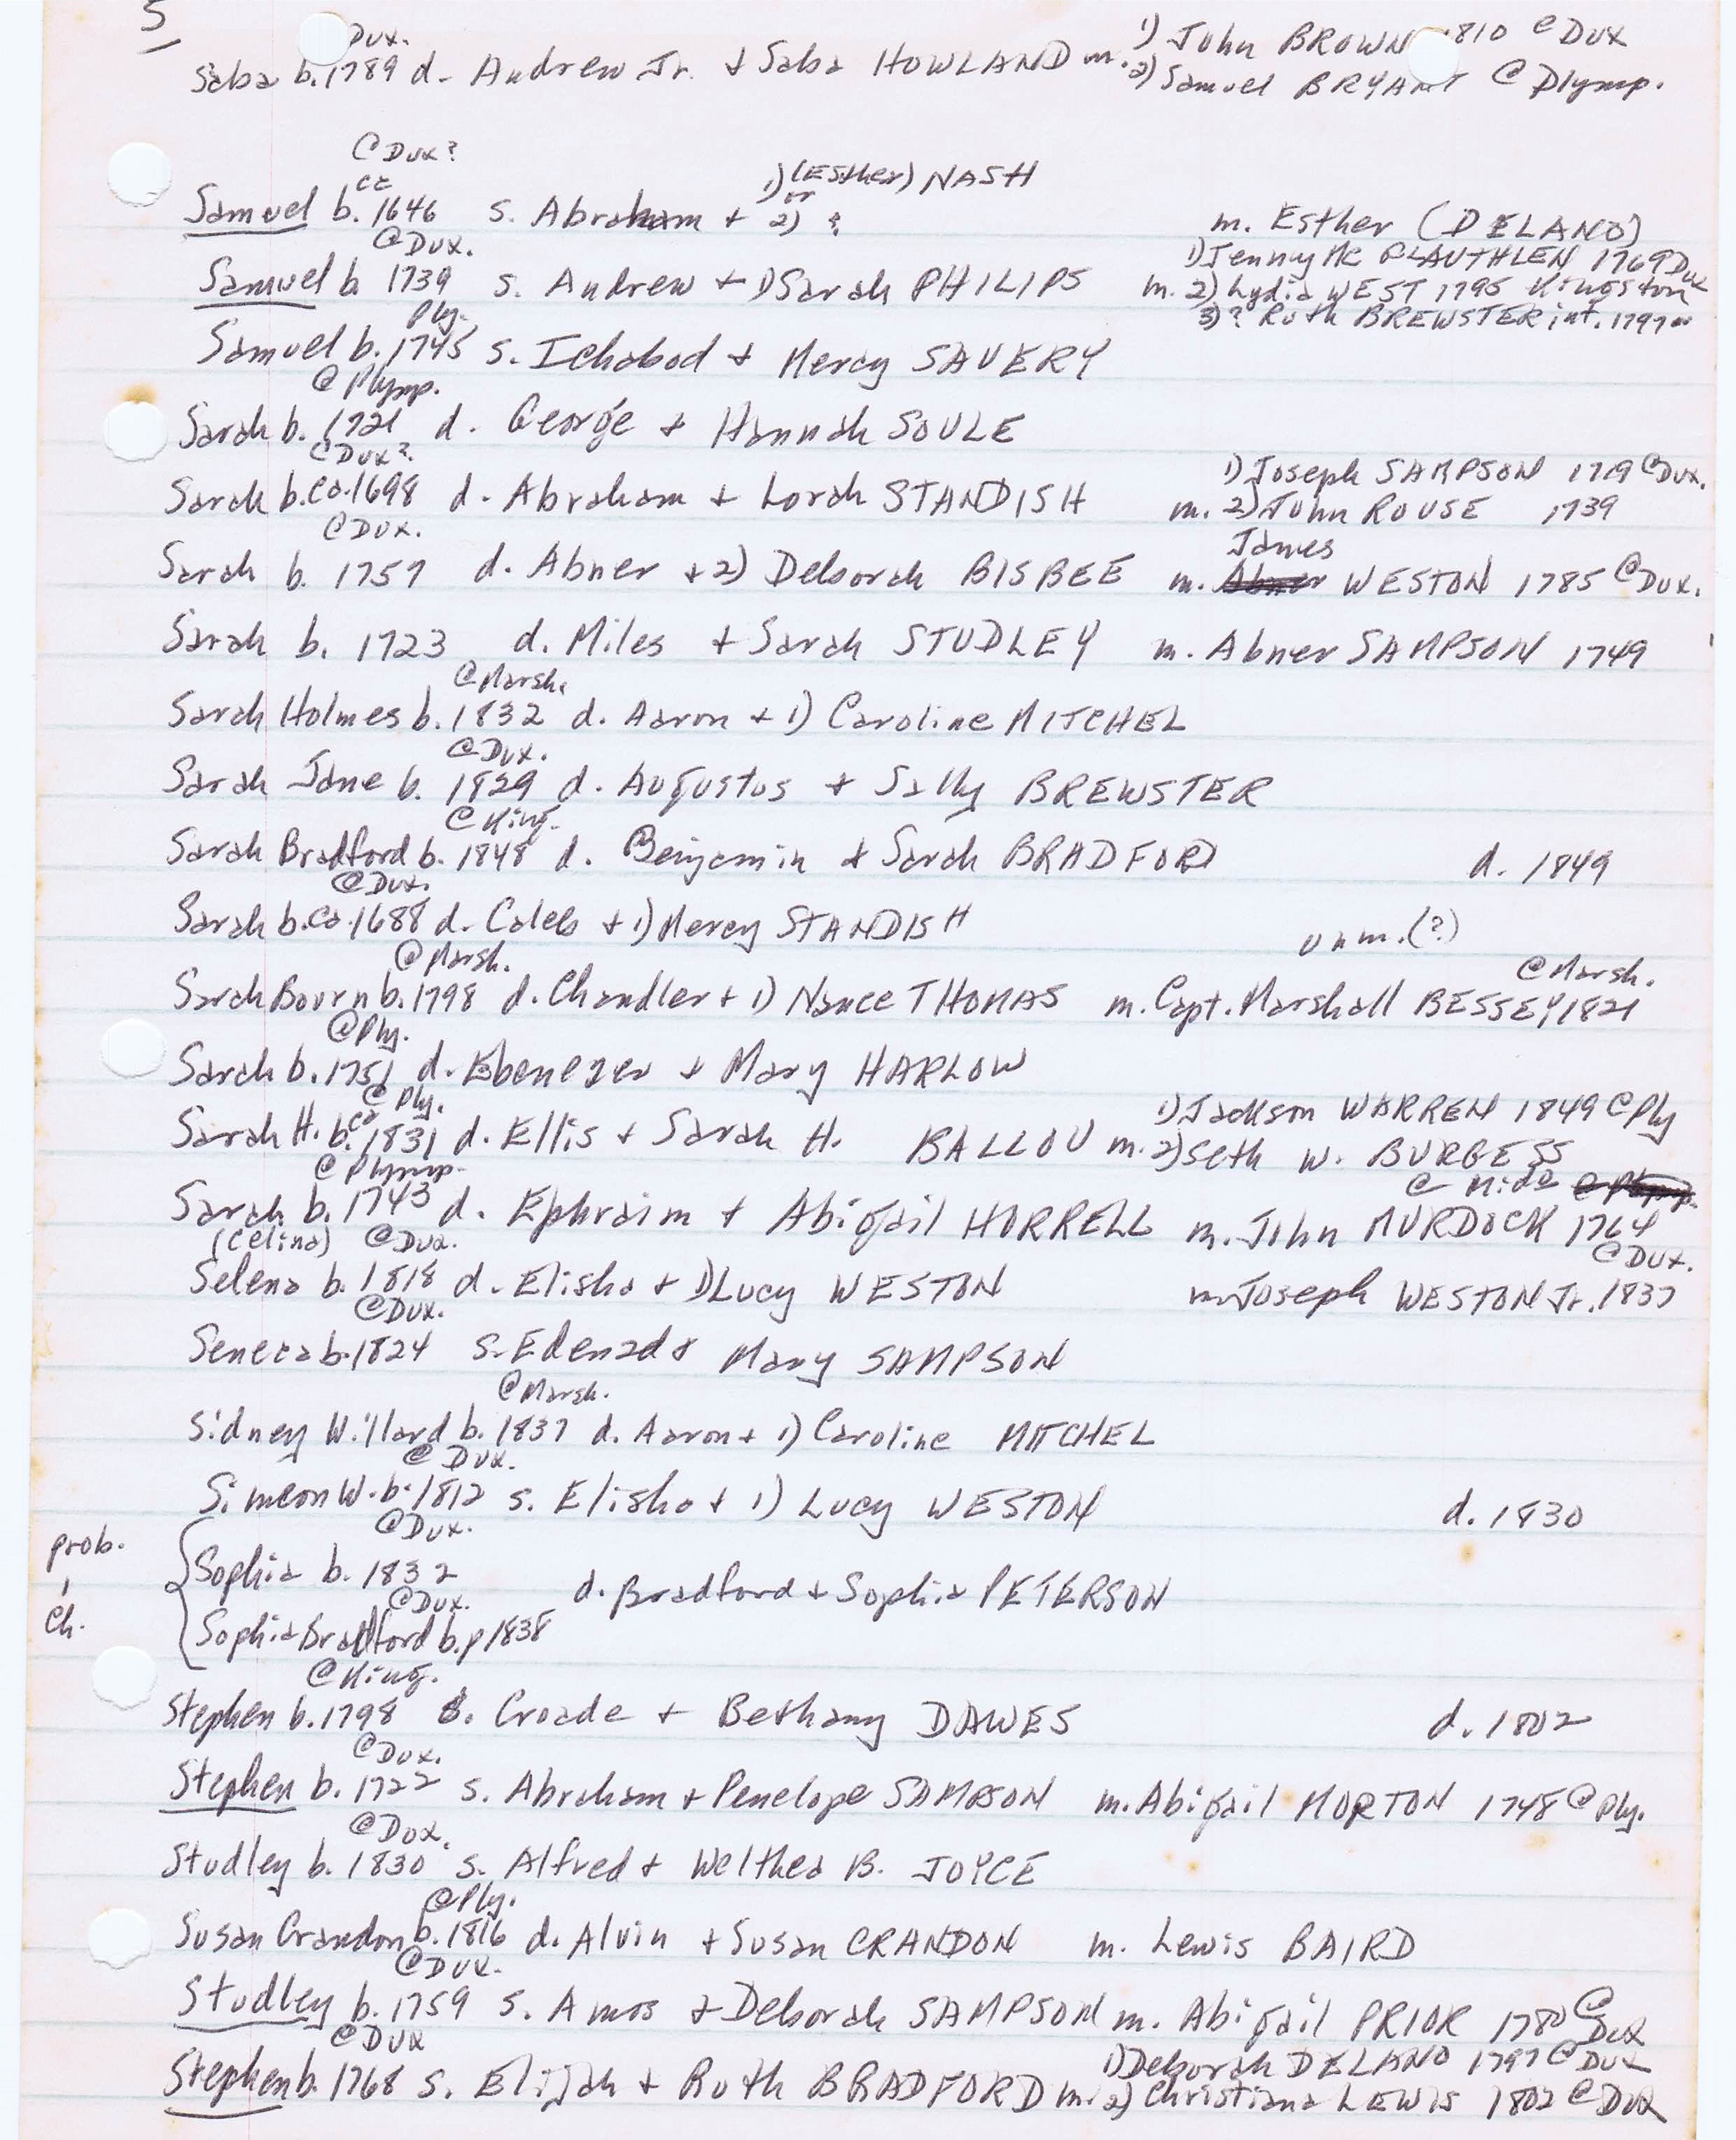 5
Dux. 1) John BROWN 1810 @ Dux
Saba b. 1789 d. Andrew Jr. + Saba HOWLAND m. 2) Samuel BRYANT @ Plymp.
@ Dux? 1) (Esther) NASH
ca or
Samuel b. 1646 s. Abraham + 2) ? m. Esther (DELANO)
@ Dux. 1) Jenny Mc GLAUTHLEN 1769 Dux
Samuel b. 1739 s. Andrew + 1) Sarah PHILIPS m. 2) Lydia WEST 1795 Kingston
Ply. 3)? Ruth BREWSTER int. 1797
Samuel b. 1745 s. Ichabod + Mercy SAVERY
@ Plymp.
Sarah b. 1721 d. George + Hannah SOULE
@Dux? 1) Joseph SAMPSON 1719 @Dux.
Sarah b. ca. 1698 d. Abraham + Lorah STANDISH m. 2) John ROUSE 1739
@ Dux. James
Sarah b. 1757 d. Abner + 2) Deborah BISBEE m. Abner WESTON 1785 @Dux.
Sarah b. 1723 d. Miles + Sarah STUDLEY m. Abner SAMPSON 1749
@Marsh.
Sarah Holmes b. 1832 d. Aaron + 1) Caroline MITCHEL
@Dux.
Sarah Jane b. 1829 d. Augustus + Sally BREWSTER
@ King.
Sarah Bradford b. 1848 d. Benjamin + Sarah BRADFORD d. 1849
@Dux.
Sarah b. ca. 1688 d. Caleb + 1) Mercy STANDISH unm. (?)
@ Marsh. @ Marsh.
Sarah Bourn b. 1798 d. Chandler + 1) Nance THOMAS m. Capt. Marshall BESSEY 1821
@Ply.
Sarah b. 1751 d. Ebenezer + Mary HARLOW
@ Ply. 1) Jackson WARREN 1849 @ Ply
Sarah H. b. ca 1831 d. Ellis + Sarah H. BALLOU m. 2) Seth W. BURGESS
@ Plymp. @ Midd @ Plymp.
Sarah b. 1743 d. Ephraim + Abigail HORRELL m. John MURDOCK 1764
(Celina) @Dux. @Dux.
Selena b. 1818 d. Elisha + 1) Lucy WESTON m. Joseph WESTON Jr. 1837
@Dux.
Seneca b. 1824 s. Edenad + Mary SAMPSON
@Marsh.
Sidney Willard b. 1837 d. Aaron + 1) Caroline MITCHEL
@ Dux.
Simeon W. b. 1812 s. Elisha + 1) Lucy WESTON d. 1830
prob. @Dux.
Sophia b. 1832 d. Bradford + Sophia PETERSON
1 @Dux.
ch. Sophia Bradford b. p 1838
@ King.
Stephen b. 1798 s. Croade + Bethany DAWES d. 1802
@Dux.
Stephen b. 1722 s. Abraham + Penelope SAMPSON m. Abigail MORTON 1748 @ Ply.
@ Dux.
Studley b. 1830 s. Alfred + Welthea B. JOYCE
@Ply.
Susan Crandon b. 1816 d. Alvin + Susan CRANDON m. Lewis BAIRD
@Dux.
Studley b. 1759 s. Amos + Deborah SAMPSON m. Abigail PRIOR 1780 @ Dux
@ Dux 1) Deborah DELANO 1797 @ Dux
Stephen b. 1768 s. Elijah + Ruth BRADFORD m. 2) Christiana LEWIS 1802 @ Dux